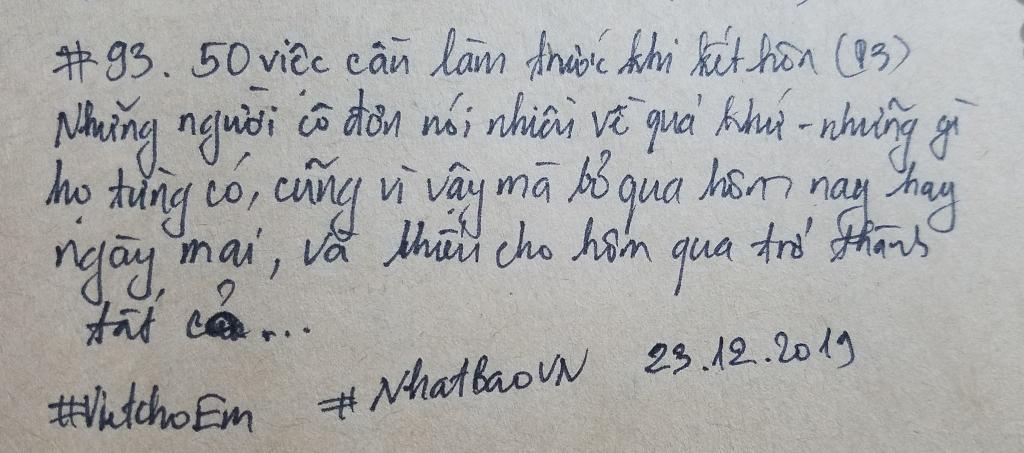 #93. 50 việc cần làm trước khi kết hôn (93)
Những người cô đơn nói nhiều về quá khứ - những gì
họ từng có, cũng vì vậy mà bỏ qua hôm nay hay
ngày mai, và khiến cho hôm qua trở thành
tất cả...
#VietchoEm #NhatBaoVN 23.12.2019